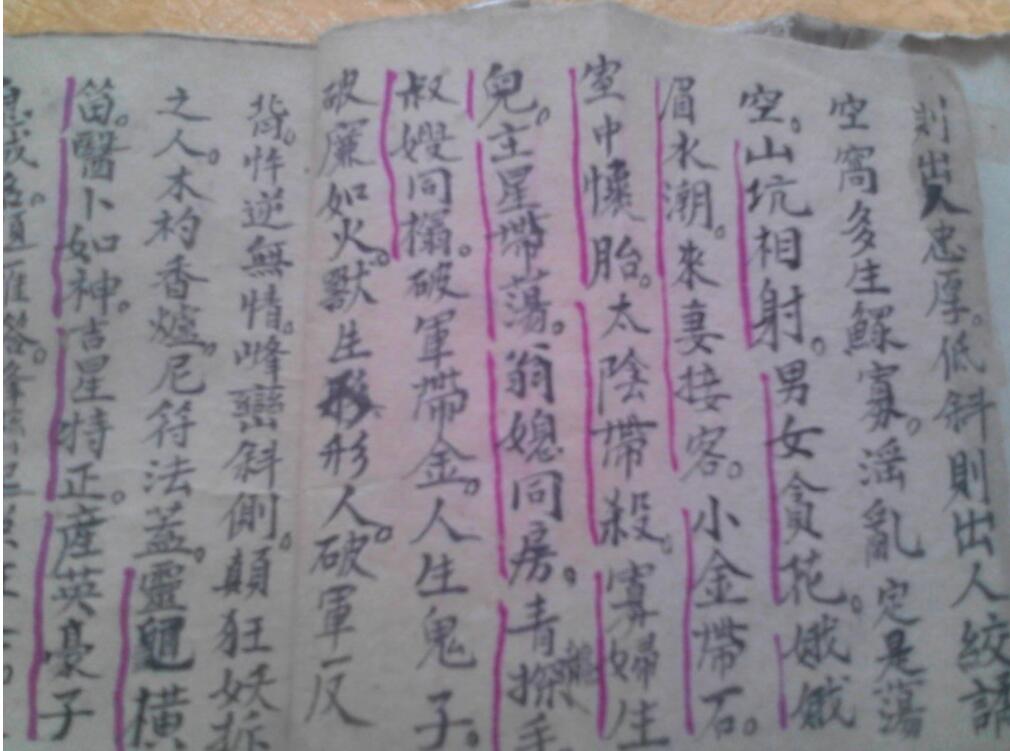 則出人忠厚。低斜則出人絞
空窩多生鰥寡。淫亂定是蕩
空。山坑相射。男女貪花。娥
眉水潮。來妻接客。小金帶石。
室中懷胎。太陰帶殺。寡婦生
兒。主星帶蕩。翁媳同房。青
叔嫂同榻。破軍帶金。人生鬼子。
破廉如火。獸生形人。破軍一反
背。忤逆無情。峰巒斜側。顛狂妖
之人。木杓香爐。尼符法蓋。靈龜橫
笛。醫卜如神。吉星特正。產英豪子